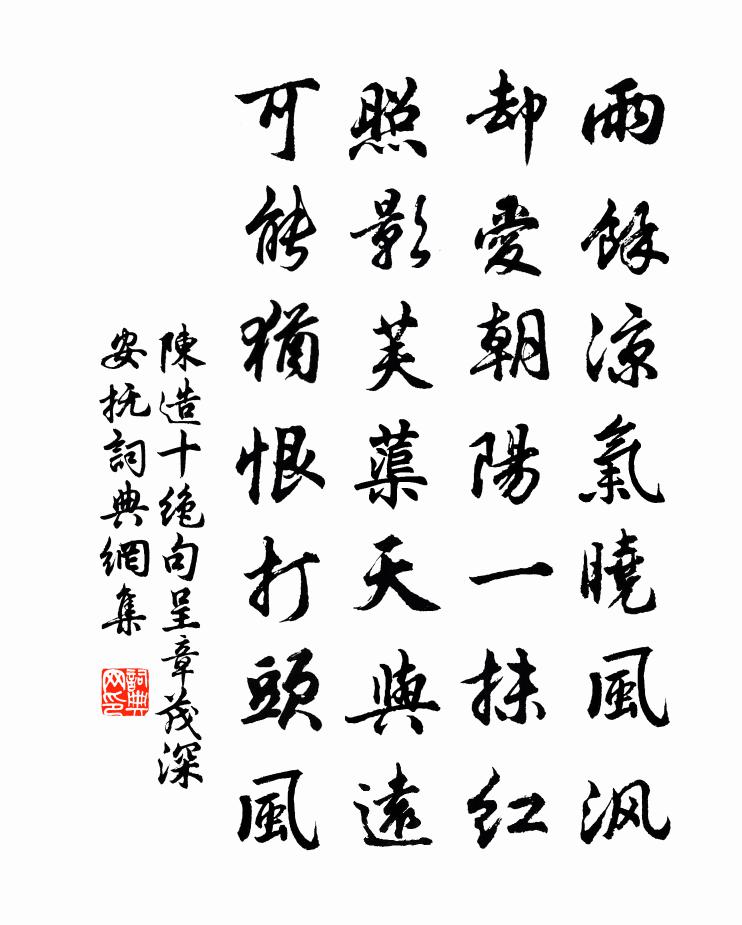 雨餘涼氣曉風渢
却愛朝陽一抹紅
照影芙蕖天與遠
可能猶恨打頭風
陳造十絶句呈章茂深
安撫詞典網集
詞典网印